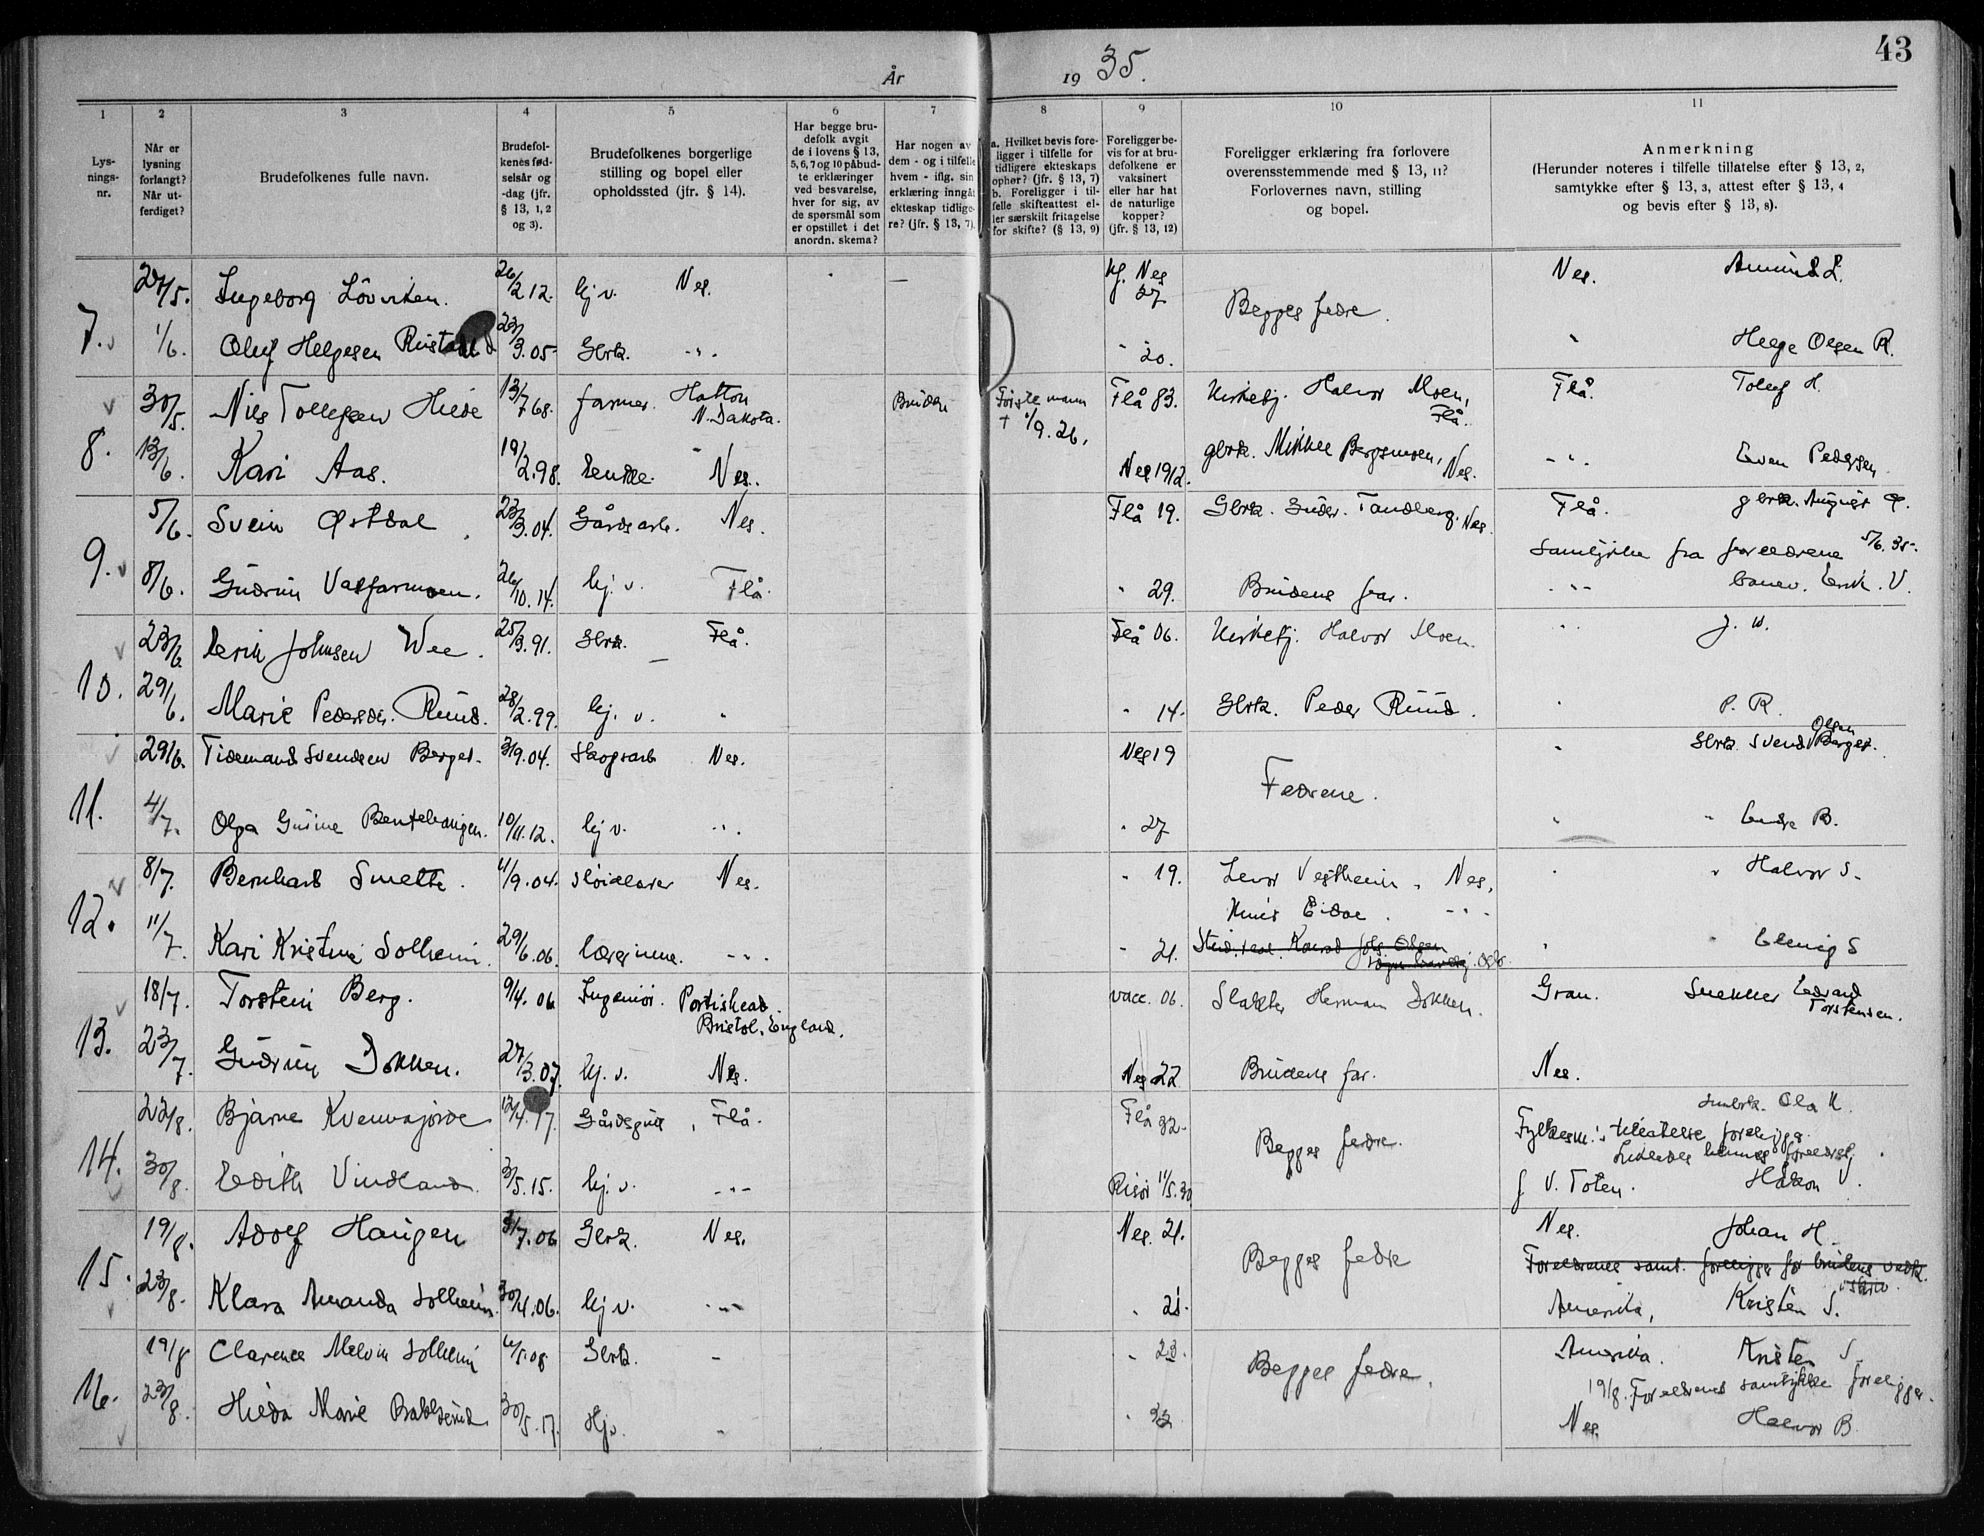 År 1935.
43
1 2 3 4 5 6 7 8 9 10 11
Lysnings-nr.
Når er lysning forlangt? Når utferdiget?
Brudefolkenes fulle navn.
Brudefolkenes fødselsår og -dag (jfr. § 13, 1, 2 og 3).
Brudefolkenes borgerlige stilling og bopel eller opholdssted (jfr. § 14).
Har begge brudefolk avgit de i lovens § 13, 5, 6, 7 og 10 påbudte erklæringer ved besvarelse, hver for sig, av de spørsmål som er opstillet i det anordn. skema?
Har nogen av dem - og i tilfelle hvem - iflg. sin erklæring inngått ekteskap tidligere? (jfr. § 13, 7).
a. Hvilket bevis foreligger i tilfelle for tidligere ekteskaps ophør? (jfr. § 13, 7) b. Foreligger i tilfelle skifteattest eller særskilt fritagelse for skifte? (§ 13, 9)
Foreligger bevis for at brudefolkene er vaksinert eller har hat de naturlige kopper? (jfr. § 13, 12)
Foreligger erklæring fra forlovere overensstemmende med § 13, 11? Forlovernes navn, stilling og bopel.
Anmerkning (Herunder noteres i tilfelle tillatelse efter § 13, 2, samtykke efter § 13, 3, attest efter § 13, 4 og bevis efter § 13, 8).
7. 27/5. Ingeborg Løvviken. 26/2 12. hj v. Nes. — Nes 27 Begges fedre. Nes. Amund L.
1/6. Oluf Helgesen Rustad 23/3.05 Gbrk. -"- " 20. " Helge Olsen R.
8. 30/5. Nils Tollefsen Hilde 13/7 68. farmer. Hatton N. Dakota. Bruden Første mann † 1/9.26. Flå 83. Kirketj. Halvor Moen, Flå. Flå. Tollef H.
13/6. Kari Aas. 19/2.98. Enke. Nes. Nes 1912. gbrk. Mikkel Bergsmoen, Nes. -"- Even Pedersen
9. 5/6. Svein Østdal 23/3.04. Gårdsarb. Nes. Flå 19. Gbrk. Guder. Tandberg. Nes Flå. gbrk. August Ø.
Samtykke fra foreldrene 5/6.35.
8/6. Gudrun Valfarmoen. 26/10.14. hj. v. Flå. " 29. Brudens far. -"- Erik. V.
10. 23/6. Erik Johnsen Wee. 25/3.91. Gbrk. Flå. Flå 06. Kirketj. Halvor Moen. " J. W.
29/6. Marie Pedersdr. Ruud. 28/2.99. hj. v. " " 14. Gbrk. Peder Ruud. " P. R.
11. 29/6. Tidemand Svendsen Berget. 3/9.04. Skogsarb Nes. Nes 19 Fedrene. " Gbrk. Svend Olsen Berget.
4/7. Olga Gurine Bentehaugen. 10/11.12. hj v. -"- " 27 " " Endre B.
12. 8/7. Bernhard Smette. 4/9.04. sløidlærer Nes. " 19. Levor Vestheim, Nes, " " Halvor S.
Knut Eidal. -"-
11/7. Kari Kristine Solheim. 29/6.06. lærerinne. -"- " 21. Stud. real. Konrad Johs. Olsen Oslo. " " Elling S
13. 18/7. Torstein Berg. 9/4.06 Ingeniør. Portishead. Bristol, England. vacc. 06. Slakter Herman Dokken. Gran. Snekker Edvard Torstensen.
23/7. Gudrun Dokken. 27/3.07. hj. v. Nes. Nes 22 Brudens far. Nes.
14. 22/8. Bjarne Kvennajorde 12/4.17. Gårdsgutt, Flå. Flå 32. Begges fedre. Småbrk. Ola K.
Fylkesm.'s tillatelse foreligger.
30/8. Edith Vindland. 3/5.15. hj. v. -"- Risør 11/5.30 f V. Toten. Håkon V.
15. 19/8. Adolf Haugen 3/7.06 Gbrk. Nes. Nes. 21. Begges fedre Nes. Johan H.
Foreldrenes samt. foreligger for brudens vedk.
23/8. Klara Amanda Solheim. 30/4.06. hj v. -"- " 21. Amerika, Kristen S.
16. 19/8 Clarence Melvin Solheim 6/5.08 Gbrk. " " 23. Begges fedre. Amerika. Kristen S.
19/8. Foreldrenes samtykke foreligger.
23/8. Hilda Marie Bakkerud. 30/5.17. Hj v. " " 32 Nes. Halvor B.